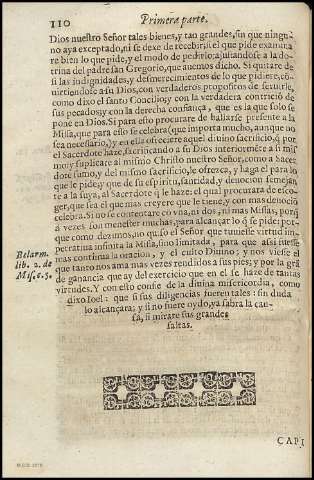 110
Primera parte.
Dios nuestro Señor tales bienes, y tan grandes, sin que ningu-
no aya exceptado, ni se dexe de recebir: si el que pide examina
re bien lo que pide, y el modo de pedirlo; ajustandose a la do-
trina del padre san Gregorio, que auemos dicho. Si quitare de
si las indignidades, y desmerecimientos de lo que pidiere, có-
uirtiendose a su Dios, con verdaderos propositos de seruirle,
como dixo el santo Concilio; y con la verdadera contrició de
sus pecados; y con la derecha confiança, que es la que solo se
pone en Dios. Si para esto procurare de hallarse presente a la
Missa, que para esso se celebra (que importa mucho, aunque no
sea necessario,) y en ella ofreciere aquel diuino sacrificio, q̃ por
el Sacerdote haze, sacrificando a su Dios interiorméte a si mis
mo; y suplicare al mismo Christo nuestro Señor, como a Sacer
dote sumo, y del mismo sacrificio, le ofrezca, y haga el por lo
que le pide; y que de su espiritu, santidad, y deuocion semejan
te a la suya, al Sacerdote q̃ le haze: el qual procurara de esco-
ger, que sea el que mas creyere que le tiene, y con mas deuoció
celebra. Si no se contentare có vna, ni dos, ni mas Missas, porq̃
a vezes son menester muchas, para alcançar lo q̃ se pide: por-
que como dezimos, no quiso el Señor que tuuiesse virtud im-
petratiua infinita la Missa, sino limitada, para que assi fuesse
mas continua la oracion, y el culto Diuino; y nos viesse el
que tanto nos ama mas vezes rendidos a sus pies; y por la grã
de ganancia que ay del exercicio que en el se haze de tantas
virtudes. Y con esto confie de la diuina misericordia, como
dixo Ioel: que si sus diligencias fueren tales: sin duda
lo alcançara; y si no fuere oydo, ya sabra la cau-
sa, si mirare sus grandes
faltas.
Belarm.
lib. 2. de
Miss. c. 5.
CAPI